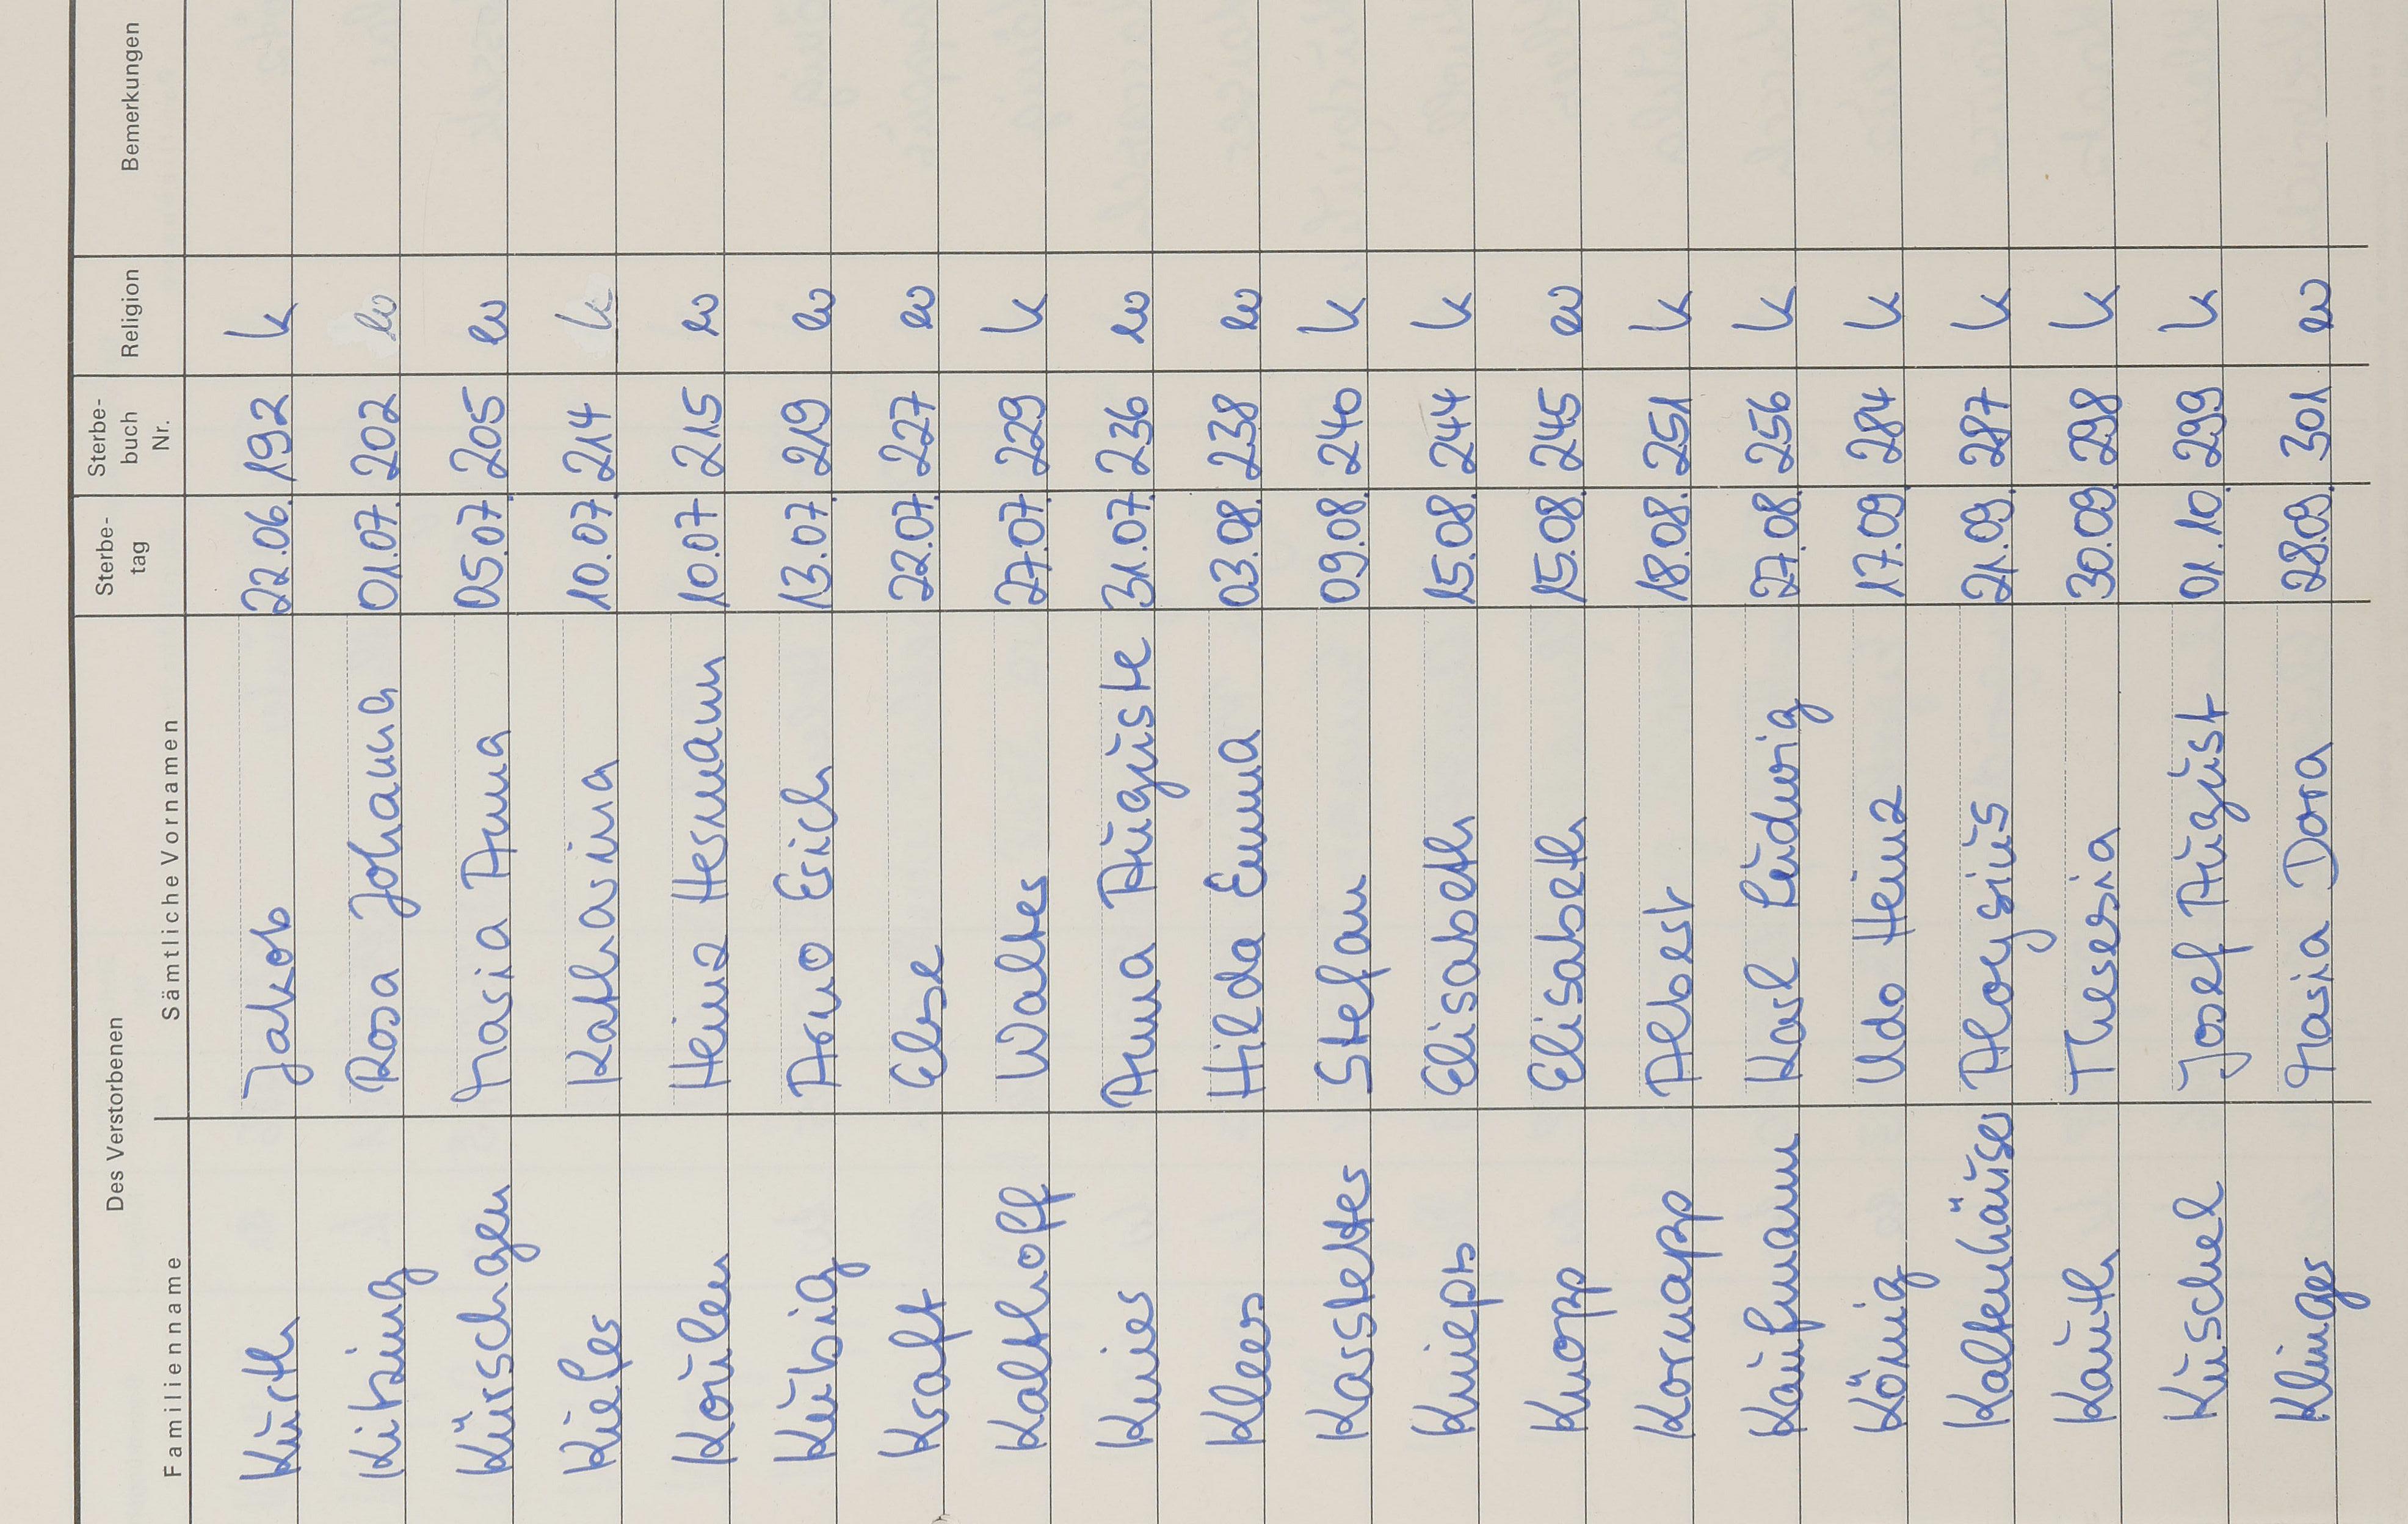 Des Verstorbenen Sterbe-tag Sterbe-buch Nr. Religion Bemerkungen
Familienname Sämtliche Vornamen
Kurth Jakob 22.06. 192 k
Kitzing Rosa Johanna 01.07. 202 ev
Kürschgen Maria Anna 05.07. 205 ev
Kiefer Katharina 10.07. 214 k
Koulen Heinz Hermann 10.07. 215 ev
Kubig Arno Erich 13.07. 219 ev
Kraft Else 22.07. 227 ev
Kalthoff Walter 27.07. 229 k
Knies Anna Auguste 31.07. 236 ev
Klees Hilda Emma 03.08. 238 ev
Kastelter Stefan 09.08. 240 k
Knieps Elisabeth 15.08. 244 k
Knopp Elisabeth 15.08. 245 ev
Kornapp Albert 18.08. 251 k
Kaufmann Karl Ludwig 27.08. 256 k
König Udo Heinz 17.09. 284 k
Kaltenhäuser Aloysius 21.09. 287 k
Kauth Theresia 30.09. 298 k
Kuschel Josef August 01.10. 299 k
Klinger Maria Dora 28.09. 301 ev